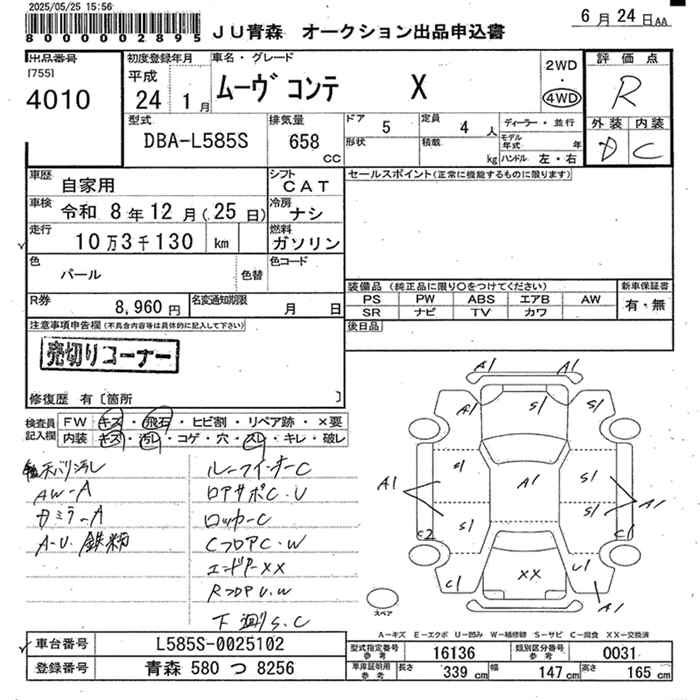 2025/05/25 15:56
800000002895
JU青森 オークション出品申込書
6月24日AA
出品番号
[755]
4010
初度登録年月
平成
24 1月
車名・グレード
ムーヴ コンテ X
2WD
・
4WD
評価点
R
外装 内装
D C
型式
DBA-L585S
排気量
658
CC
ドア 5
定員 4人
ディーラー・並行
形状
積載 kg
モデル年式 年
ハンドル 左・右
車歴
自家用
シフト
CAT
セールスポイント(正常に機能するものに限ります)
車検
令和 8年12月(.25日)
冷房
ナシ
走行
10万3千130 km
燃料
ガソリン
色
パール
色替
色コード
装備品 (純正品に限り〇をつけてください)
新車保証書
PS PW ABS エアB AW
有・無
SR ナビ TV カワ
R券
8,960円
名変通知期限
月 日
後日品
注意事項申告欄(不具合内容等は具体的に記入して下さい)
売切りコーナー
修復歴 有〔箇所 〕
検査員記入欄
FW キズ・飛石・ヒビ割・リペア跡・×要
内装 キズ・汚レ・コゲ・穴・スレ・キレ・破レ
ルーフインナーC
AW-A
ロアサポC.U
ミラーA
ロッカーC
A-U 鉄粉
CフロアC.W
エンドP-XX
RフロアU.W
下廻りS.C
A1 A1
A1 S1 S1
A1 S1 A1 S1 A1
S1 S1
C2 C2
C1 XX U1
A1
スペア
A-キズ E-エクボ U-凹み W-補修跡 S-サビ C-腐食 XX-交換済
車台番号
L585S-0025102
型式指定番号
参考
16136
類別区分番号
参考
0031
登録番号
青森 580 つ 8256
車庫証明用
参考
長さ 339 cm
幅 147 cm
高さ 165 cm